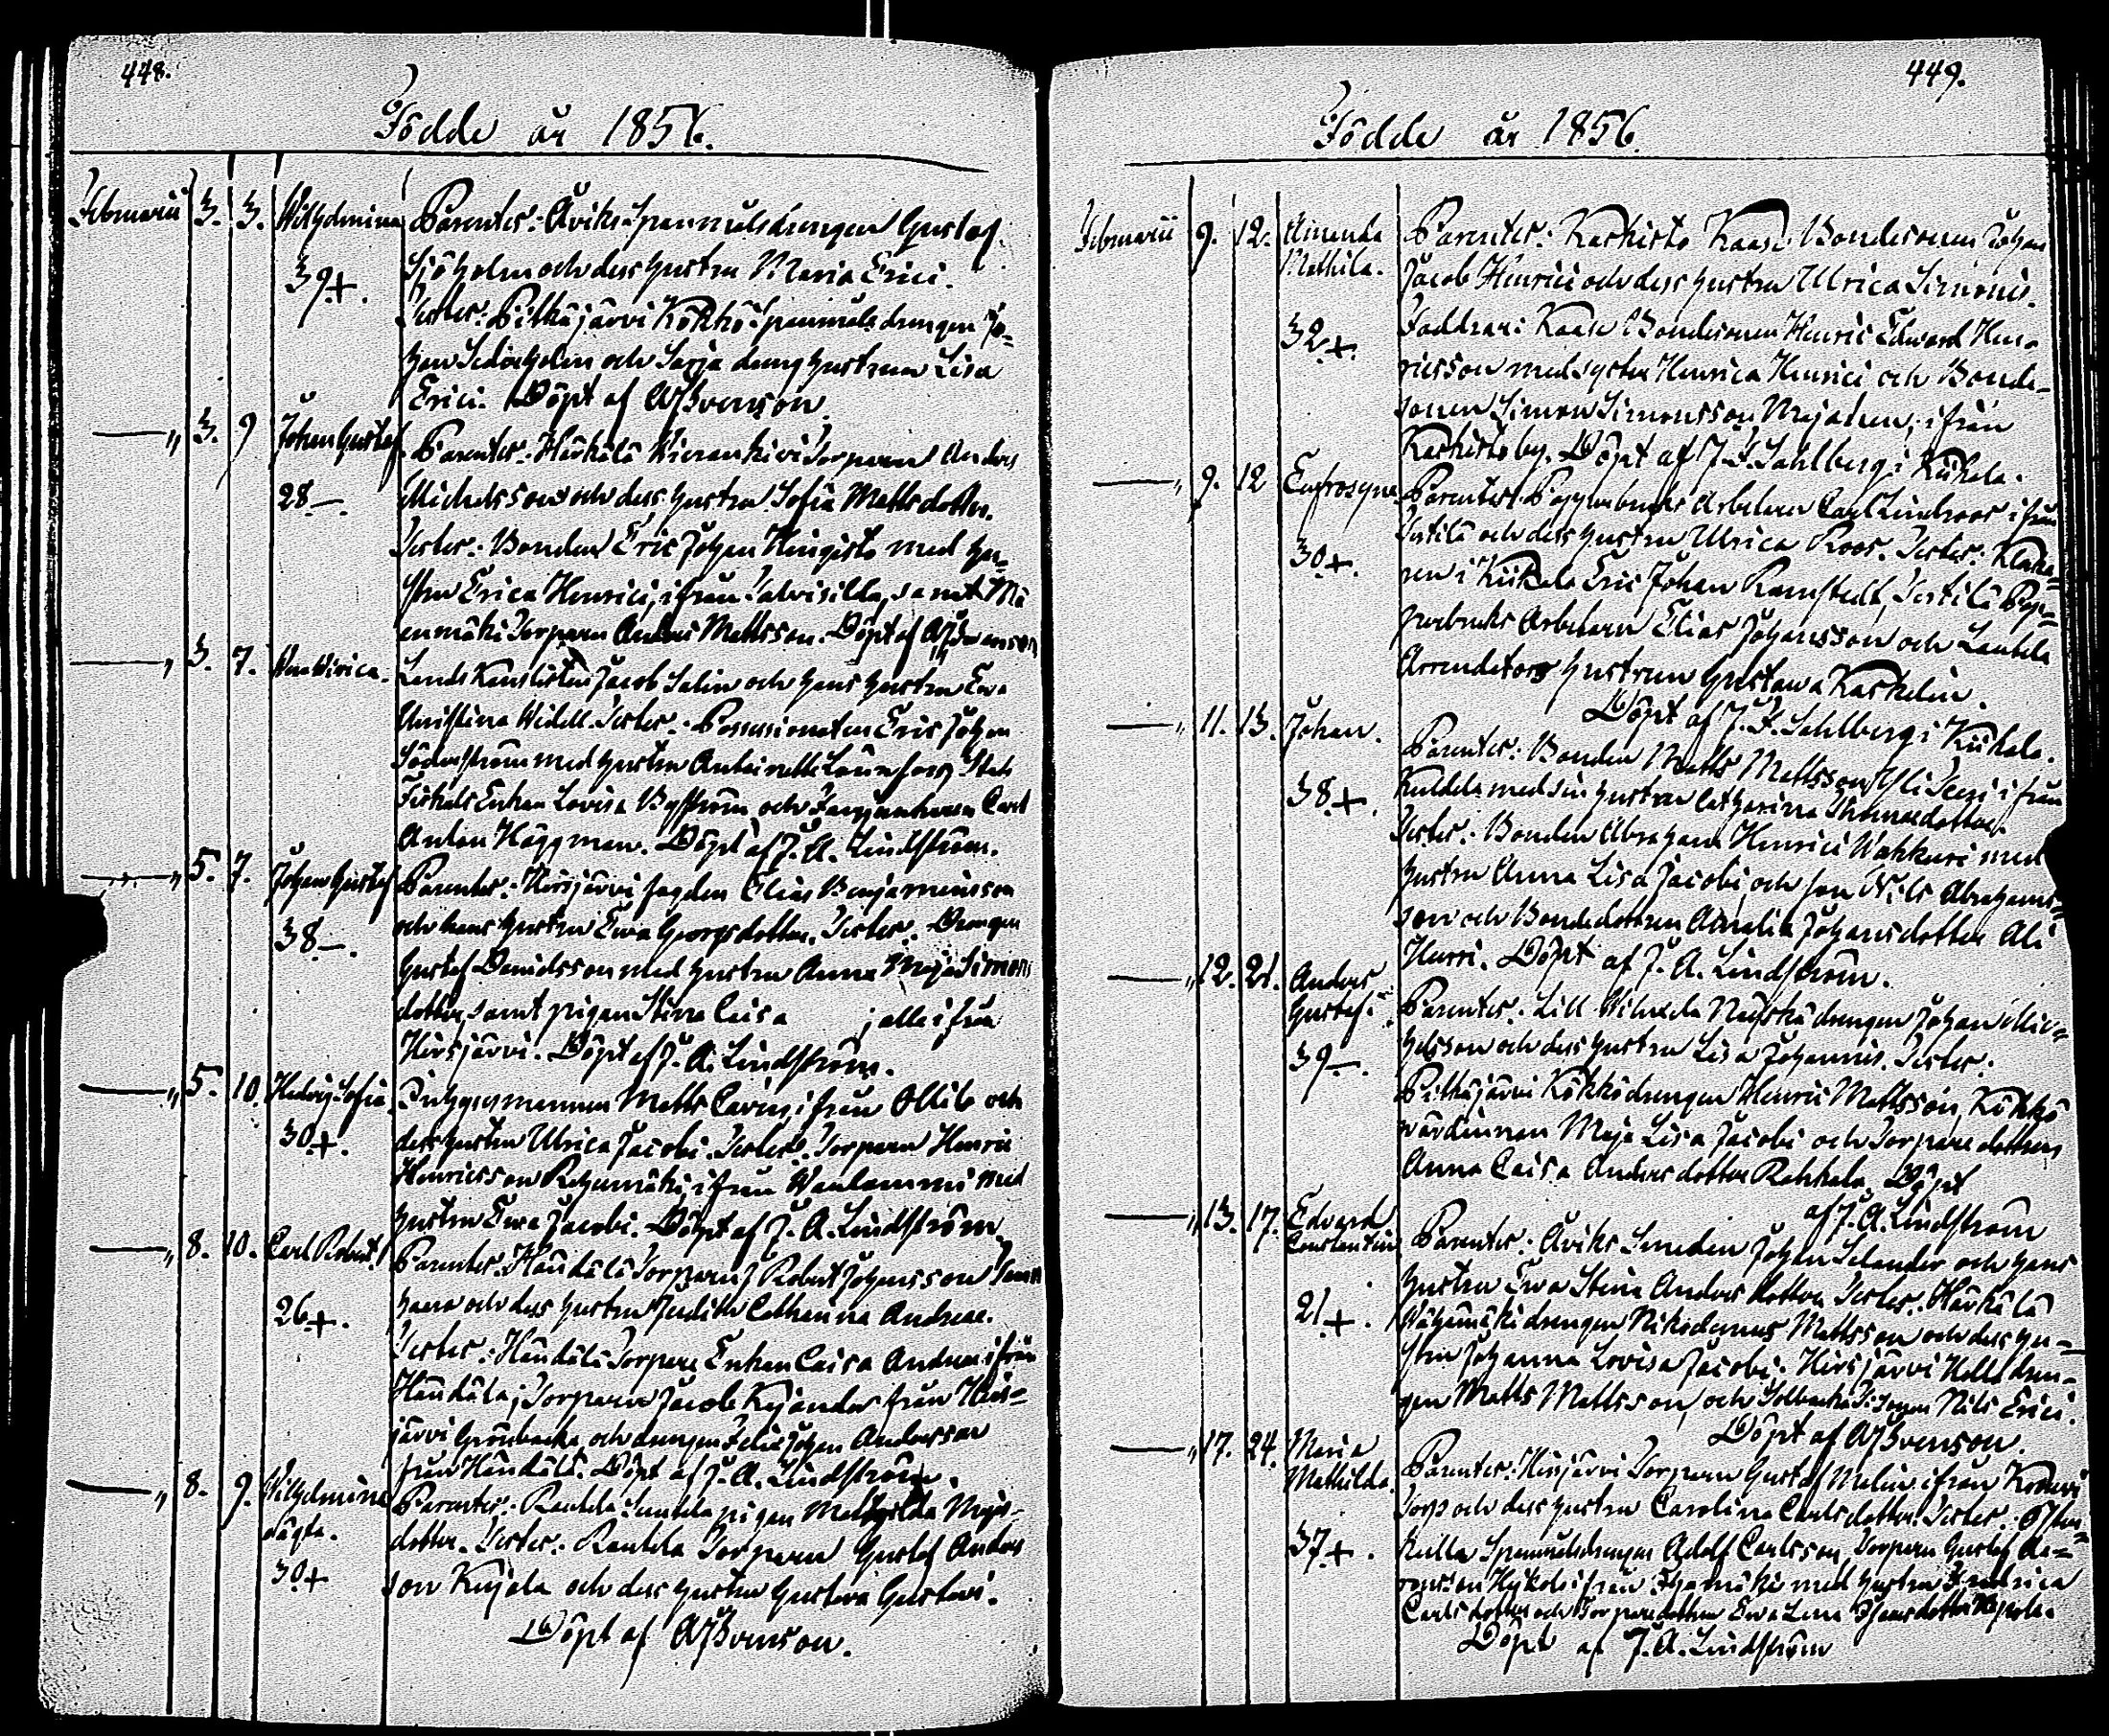 448.
Födde år 1856.
Februarii 3. 3. Wilhelmina Parentes: Åviks Spannmålsdrengen Gustaf
Sjöholm och dess hustru Maria Erici.
39+.
Testes: Pitkäjärvi Kökkö Spanmåls drengen Jo=
han Söderholm och Sarja dreng hustrun Lisa
Erici. Döpt af A Svenson.
—„ 3. 9 Johan Gustaf. Parentes: Härkälä Kiventorparen Anders
28—. Michelsson och dess hustru Sofia Mattsdotter.
Testes: Bonden Eric Johan Hingisto med hu=
stru Erica Henrici, ifrån Talvisilla, samt Mä
enmäki Torparen Anders Mattsson. Döpt af A Svenson
—„ 3. 7. Ulrica. Lands Kanslisten Jacob Salin och hans hustru Eva
Christina Widell. Testes: Possessionaten Eric Johan
Söderström med hustru Antoinette Lönnfors, Stads
Fiskals Enkan Lovisa Byström och Färjeman Carl
Anton Häggman. Döpt af J. A. Lindström.
—„ 5. 7. Johan Gustaf Parentes: Hirsjärvi fogden Elias Benjaminsson
och hans hustru Eva Georgsdotter. Testes: Drengen
38—.
Gustaf Davidsson med hustru Anna Maja Simons
dotter, samt pigan Stina Caisa ; alla ifrån
Hirsjärvi. Döpt af J. A. Lindström.
—„ 5. 10. Hedvig Sofia. Inhysesmannen Matts Carius, ifrån Ollila och
30+. dess hustru Ulrica Jacobi. Testes: Torparen Henric
Henricsson Rehumäki, ifrån Vaulammi med
hustru Eva Jacobi. Döpt af J. A. Lindström.
—„ 8. 10. Carl Robert. Parentes: Händälä Torparen Robert Johansson
och dess hustru Judith Catharina Andreae.
26+.
Testes: Händälä Torpare Enkan Caisa Andreae ifrån
Händälä; Torparen Jacob Kejander från Hirs=
järvi Grönbacka, och drengen Felix Johan Andersson
från Händälä. Döpt af J. A. Lindström.
—„ 8. 9. Wilhelmina Parentes: Rautela Suutela pigan Mathilda Majs=
oägta. dotter. Testes: Rautela Torparen Gustaf Anders
30+ son Kujala och dess hustru Gustava Gustavi.
Döpt af A Svenson.
449.
Födde år 1856.
Februarii 9. 12. Amanda Parentes: Karkisto Kaase Bondesonen Johan
Mathila. Jacob Henrici och dess hustru Ulrica Simonis.
32+. Faddrar: Kaase Bondesonen Henric Edward Hen=
ricsson med syster Henrica Henrici och Bonde=
sonen Simon Simonsson Majanen, ifrån
Karkisto by. Döpt af J. F. Sahlberg i Kiikala.
—„ 9. 12 Eufrosyne Parentes: Pappersbruks Arbetaren Carl Lindroos ifrån
Testilä och dess hustru Ulrica Roos. Testes: Klocka=
30+. ren i Kiikala Eric Johan Ramstedt, Testilä Pap=
persbruks Arbetaren Elias Johansson och Lautela
Arrendators hustrun Gustava Kaskelin.
Döpt af J. F. Sahlberg i Kiikala.
—„ 11. 13. Johan. Parentes: Bonden Matts Mattsson Yli Seeri ifrån
38+. Kuldela med sin hustru Catharina Thomaedotter.
Testes: Bonden Abraham Henrici Wahkuri med
hustru Anna Lisa Jacobi, och son Nils Abrahams=
son och Bondedottren Amalia Johansdotter Ali
Hurri. Döpt af J. A. Lindström.
—„ 12. 21. Anders Gustaf. Parentes: Lill Wihrela drengen Johan Mic=
helsson och dess hustru Lisa Johannis. Testes:
39—. Pitkäjärvi Kökkö drengen Henric Mattsson, Kökkö
värdinnan Maja Lisa Jacobi och Torpare dottren
Anna Caisa Andersdotter Rahkala. Döpt
af J. A. Lindström
—„ 13. 17. Edvard Constantin Parentes: Åviks Smeden Johan Selander och hans
hustru Eva Stina Andersdotter. Testes: Härkälä
21+. Vähämäki drengen Nikodemus Mattsson och dess hu=
stru Johanna Lovisa Jacobi; Hirsjärvi Hall dren=
gen Matts Mattsson, och Nils Erici.
Döpt af A Svenson.
—„ 17. 24. Maria Mathilda Parentes: Hirsjärvi Torparen Gustaf Melin ifrån
Torp och dess hustru Carolina Carlsdotter. Testes:
37+. kulla Spanmålsdrengen Adolf Carlsson, Torparen Gustaf Aa=
ronsson ifrån med hustru Fredrica
Carlsdotter och Torparedottren Eva Lena
Döpt af J. A. Lindström